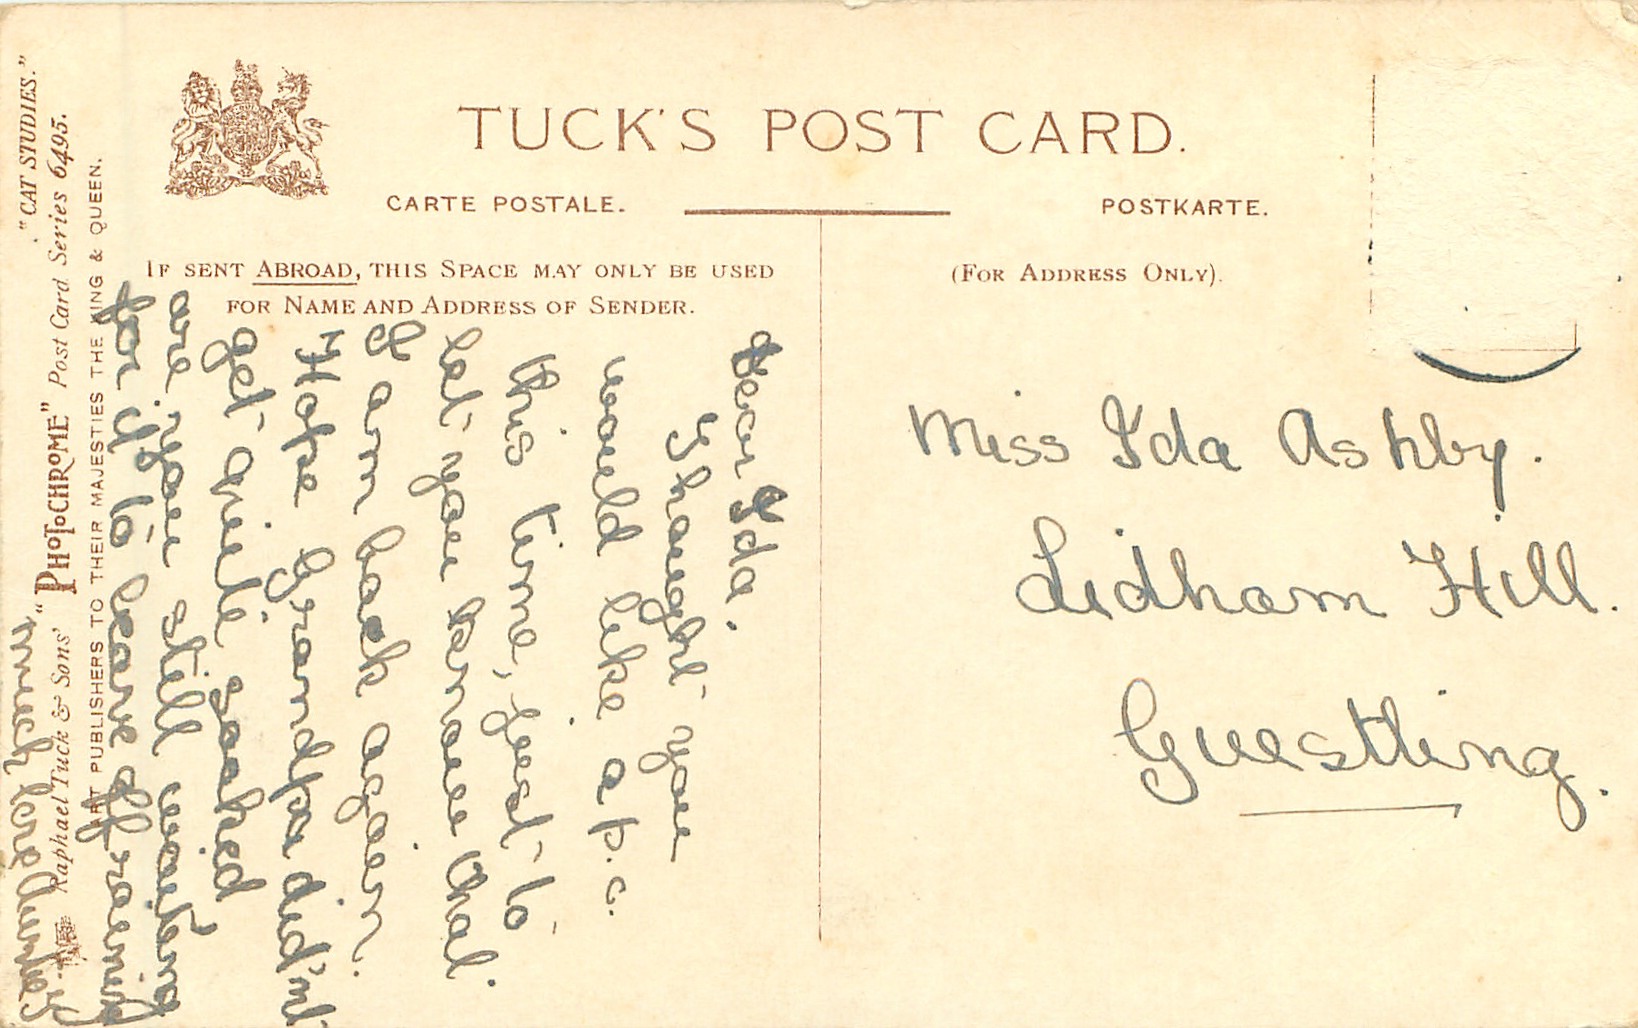 TUCK'S POST CARD.
CARTE POSTALE.
POSTKARTE.
IF SENT ABROAD, THIS SPACE MAY ONLY BE USED
FOR NAME AND ADDRESS OF SENDER.
(FOR ADDRESS ONLY).
Dear Ida.
I thought you
would like a p.c.
this time, just to
let you know that
I am back again.
Hope Grandpa did'nt
get quite soaked
are you still waiting
for it to leave off raining
much love Auntie
Miss Ida Ashby.
Lidham Hill.
Guestling.
"CAT STUDIES."
Raphael Tuck & Sons' "PHOTOCHROME" Post Card Series 6495.
ART PUBLISHERS TO THEIR MAJESTIES THE KING & QUEEN.